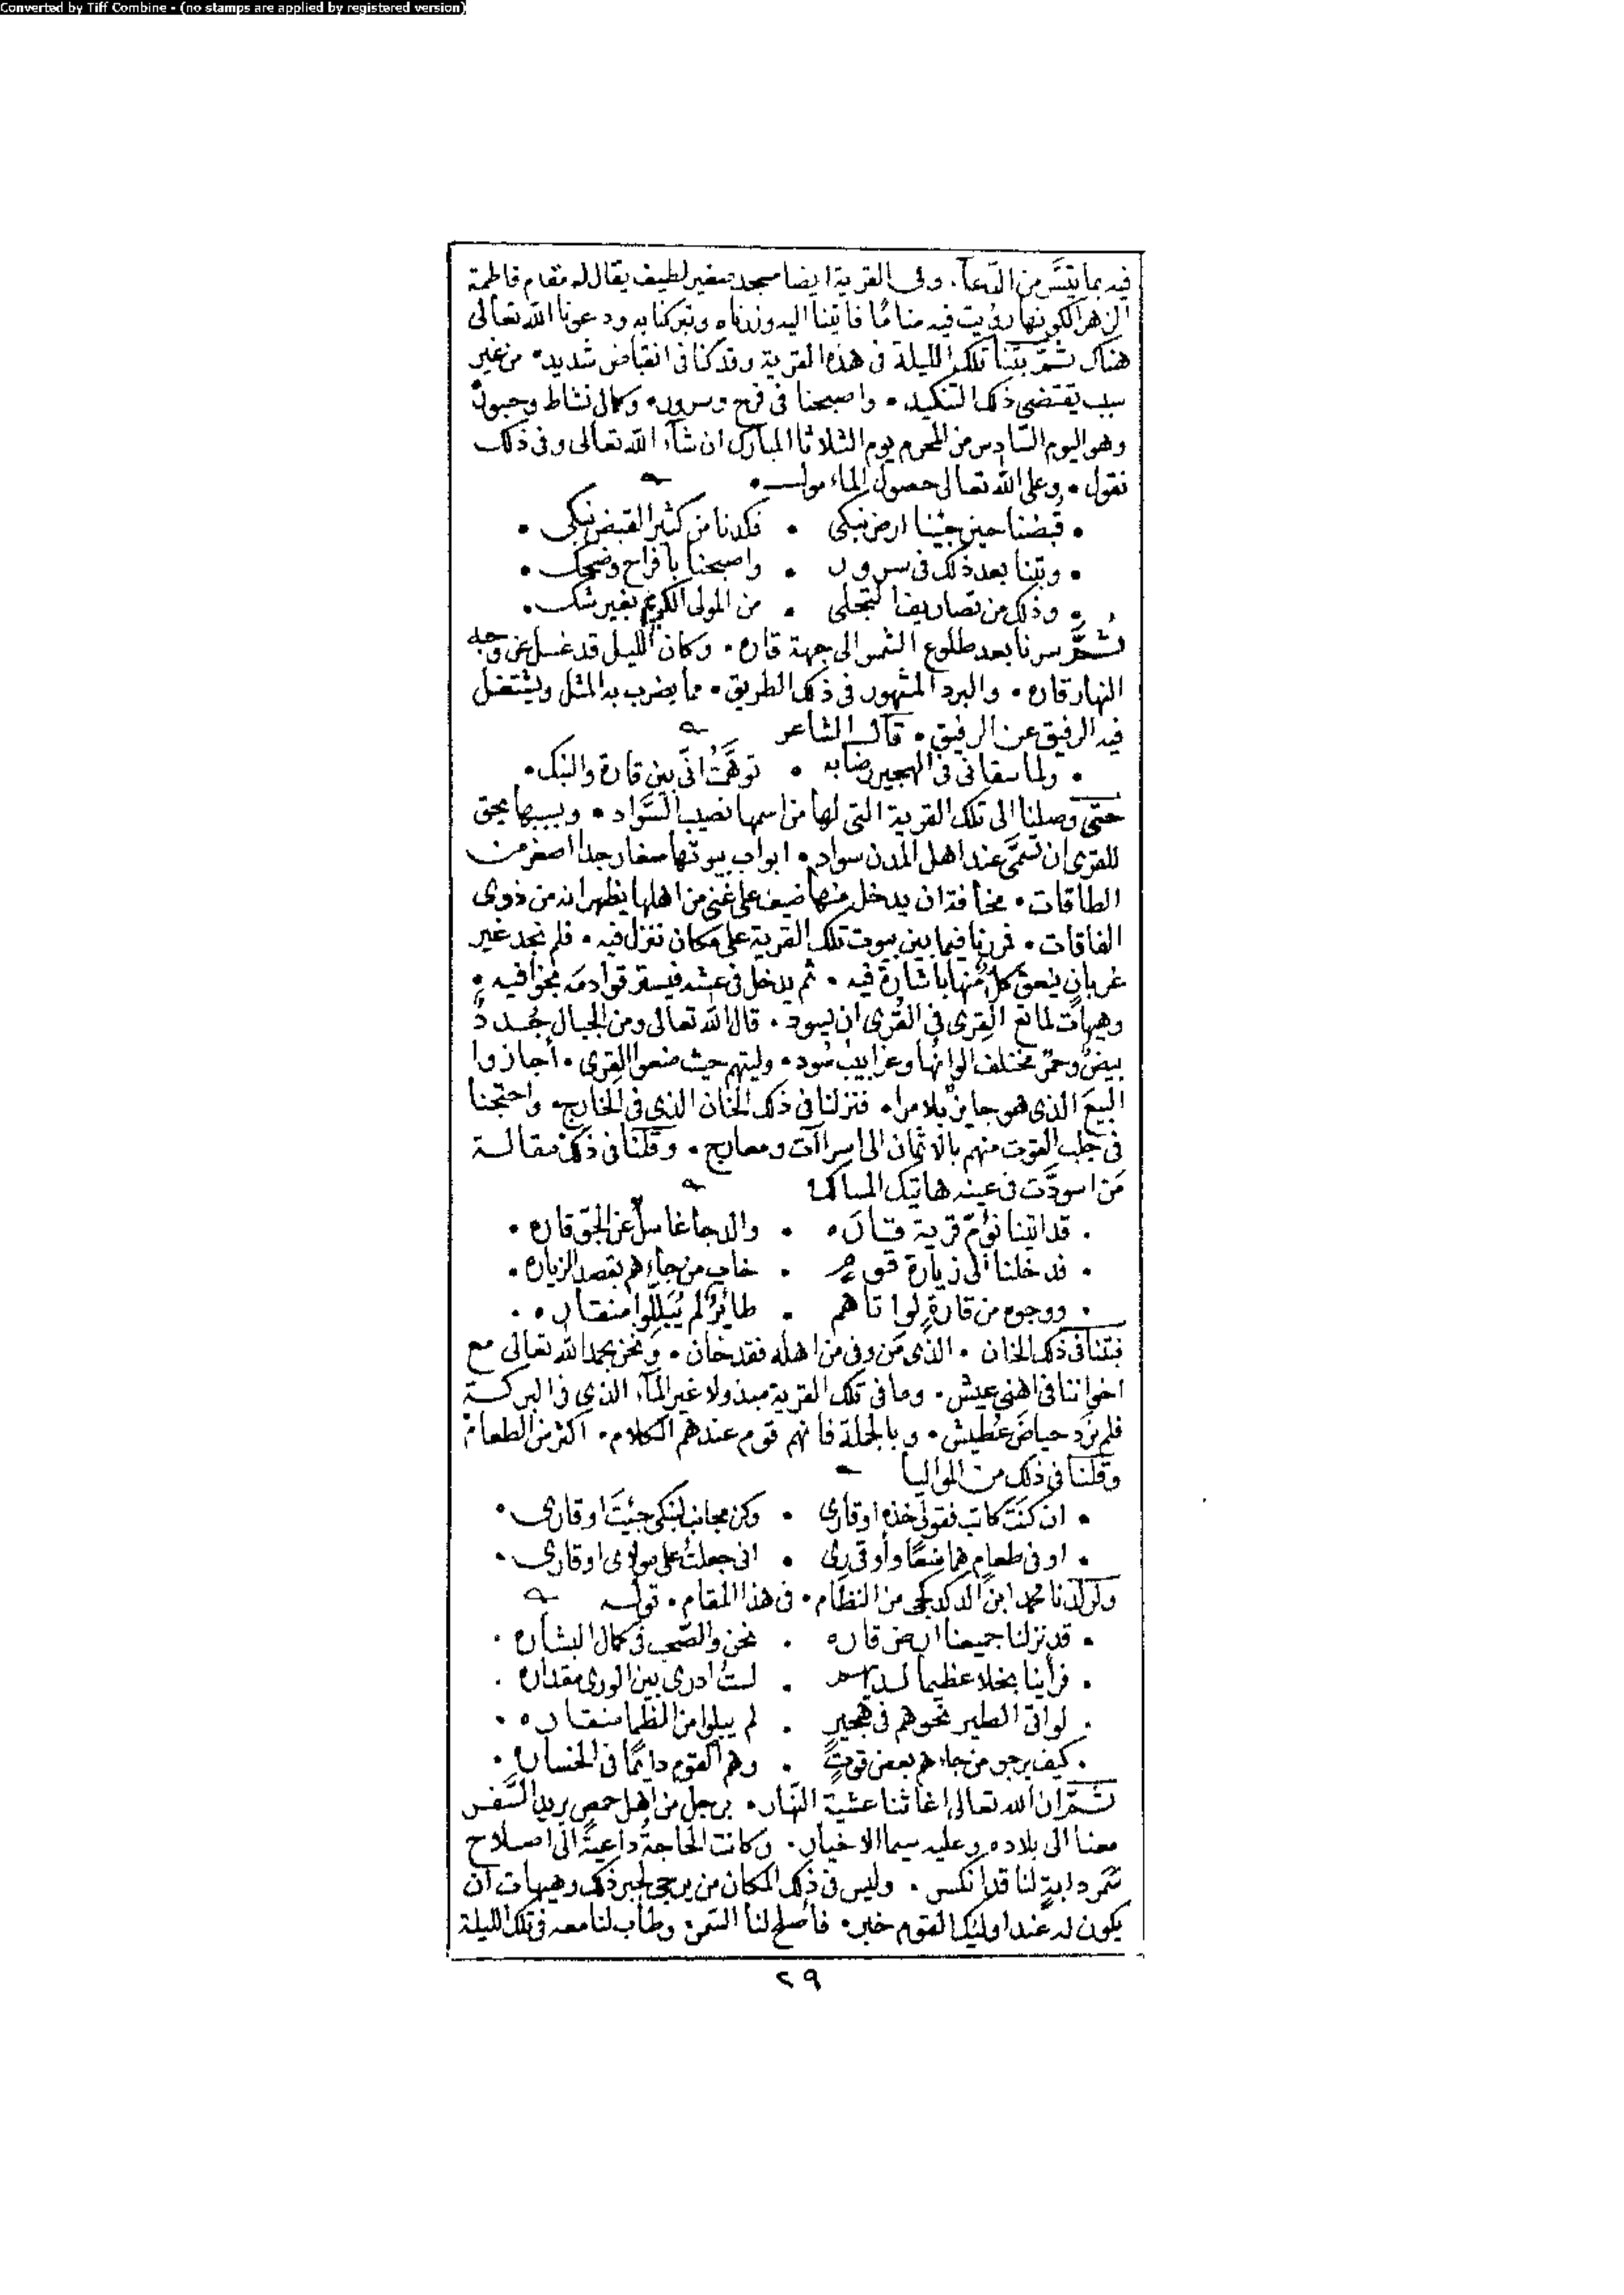 Converted by Tiff Combine - (no stamps are applied by registered version)
فيه بما تيسَّر من الدّعآ، وفى القرية ايضا مسجد صغير لطيف يقال له مقام فاطمة
الزهرا لكونها رؤيت فيه منامًا فاتينا اليه وزرناه وتبركنا به ودعونا الله تعالى
هناك ثمَّ بتنا تلك الليلة فى هذه القرية وقد كنا فى انقباض شديد • من غير
سبب يقتضى ذلك التنكيد • واصبحنا فى فرح وسرور • وكمال نشاط وحبور
وهو اليوم السّادس من المحرم يوم الثلاثا المبارك ان شآء الله تعالى وفى ذلك
نقول • وعلى الله تعالى حصول
• قبضنا حين جئنا ارض نبكى • فكدنا من كثير القبض نبكى •
• وبتنا بعد ذلك فى سرور • واصبحنا بافراح وضحك •
• وذلك من تصاريف التجلى • من المولى الكريم بغير شك •
ثُمَّ سرنا بعد طلوع الشمس الى جهة قاره • وكان الليل قد غسل عن وجه
النهار قاره • والبرد المشهور فى ذلك الطريق • مما يضرب به المثل ويشتغل
فيه الرفيق عن الرفيق • قال الشاعر
• ولما سقانى فى الهجير رضابه • توهَّمتُ انّى بين قارة والنبك •
حتى وصلنا الى تلك القرية التى لها من اسمها نصيب السَّواد • وبسببها يحق
للقرى ان تسمَّى عند اهل المدن سواد • ابواب بيوتها صغار جدا اصغر من
الطاقات • مخافة ان يدخل منها ضيف على غنى من اهلها يظهر انه من ذوى
الفاقات • فمررنا فيما بين بيوت تلك القرية على مكان ننزل فيه • فلم نجد غير
غربانٍ ينعق كلٌّ منها باشارة فيه • ثم يدخل فى عشه فيستر قوادمه بخوافيه •
وهيهات لمانع القِرى فى القُرى ان يسود • قال الله تعالى ومن الجبال جُدد
بيضٌ وحمرٌ مختلف الوانها وغرابيب سُود • وليتهم حيث منعوا القِرى • أجازوا
البيع الذى هو جايز بلا مرا • فنزلنا فى ذلك الخان الذى فى الخارج • واحتجنا
فى جلب القوت منهم بالاثمان الى ومعارج • وقلنا فى ذلك مقالة
مَن اسودَّت فى عينه هاتيك المسالك
• قد اتينا نؤمّ قرية قاره • والدجا غاسلٌ عن الجوّ قاره •
• فدخلنا الى زيارة قوم • خاب من جاءهم بقصد الزياره •
• ووجوه من قارةٍ لو اتاهم • طائرٌ لم يُبَلِّلوا منقاره •
فبتنا فى ذلك الخان • الذى مَن وفى من اهله فقد خان • ونحن بحمد الله تعالى مع
اخواننا فى اهنى عيش • وما فى تلك القرية مبذولا غير المآء الذى فى البركة
فلم نَرِد حياض عُطيش • وبالجملة فانهم قوم عندهم الكلام • اكثر من الطعام
وقلنا فى ذلك من المواليا
• ان كنتَ كاتب فقولى خذه اوقارى • وكن مجانب لنبكى جئتَ اوقارى •
• اوفى طعام هما • انى جعلتُ على مولاى اوقارى •
ولولدنا محمد ابن الدكدكجى من النظام • فى هذا المقام • قوله
• قد نزلنا جميعنا ارض قاره • نحن والصّحب فى كمال البشاره •
• فرأينا بخلا عظيما لديهم • لستُ ادرى بين الورى مقداره •
• لو اتى الطير نحوهم فى هجير • لم يبلوا من الظما منقاره •
• كيف يرجو من جاءهم بعض قوتٍ • وهم القوم دايمًا فى الخساره •
ثُمَّ ان الله تعالى اغاثنا عشية النّهار • برجل من اهل حمص يريد السَّفر
معنا الى بلاده وعليه سيما الاخيار • وكانت الحاجةُ داعيةً الى اصلاح
دابةٍ لنا قد انكسر • وليس فى ذلك المكان من يرجى لجبر ذلك وهيهات ان
يكون له عند اوليك القوم خبر • فأصلح لنا وطاب لنا معه فى تلك الليلة
٢٩